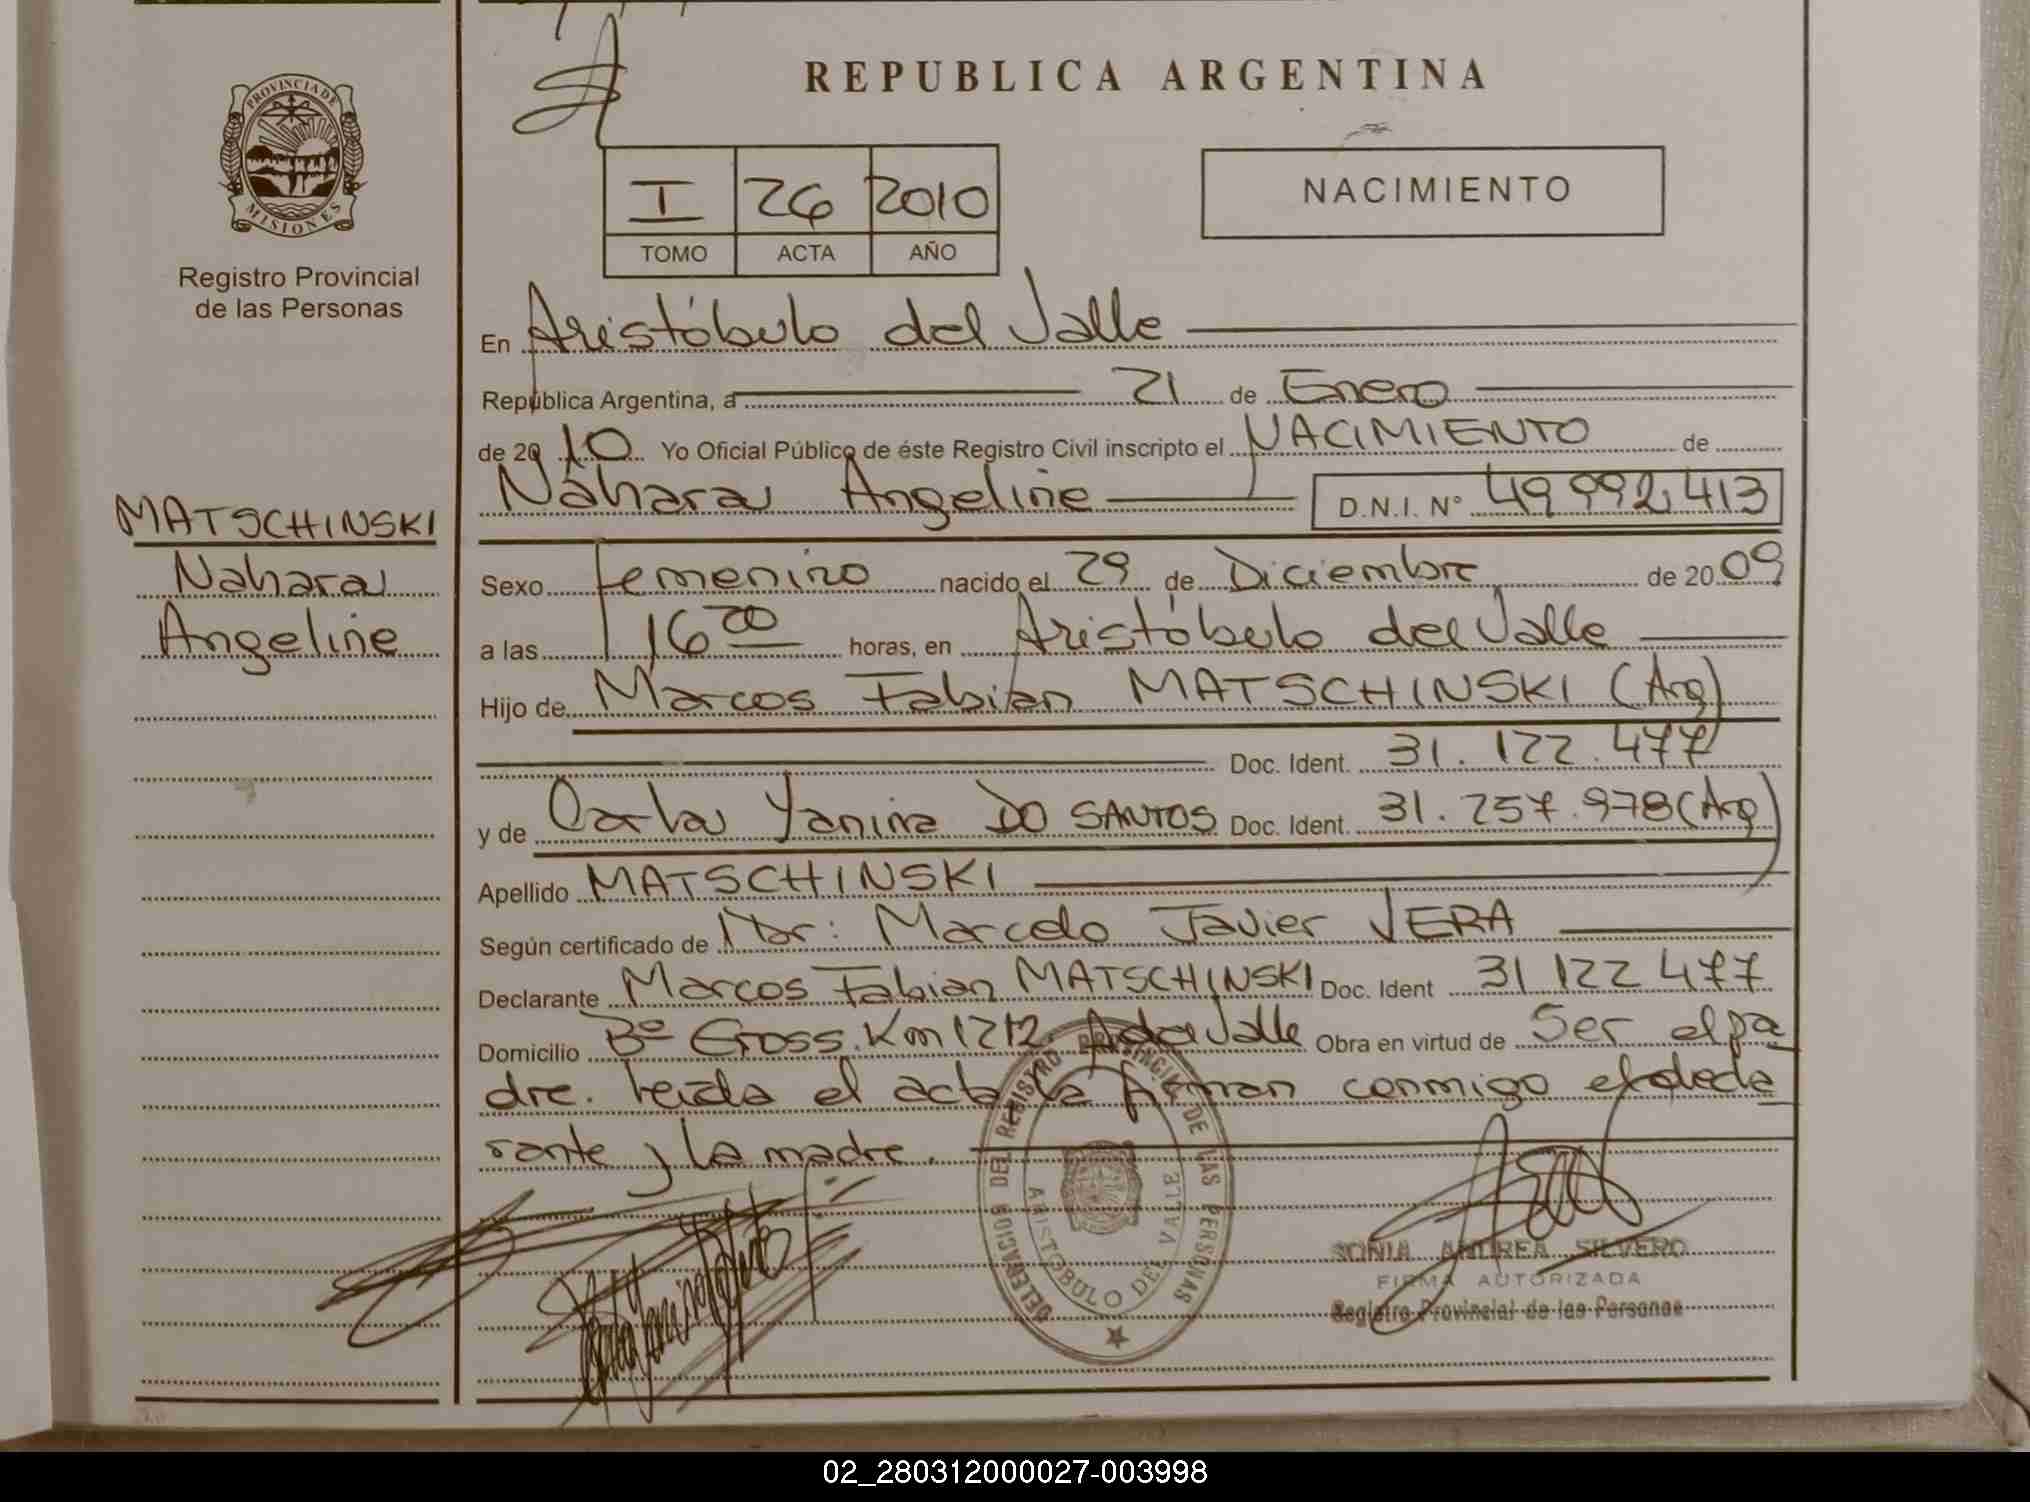 REPUBLICA ARGENTINA
PROVINCIA DE
MISIONES
Registro Provincial
de las Personas
I 26 2010
TOMO ACTA AÑO
NACIMIENTO
En Aristóbulo del Valle
República Argentina, a 21 de Enero
de 2010 Yo Oficial Público de éste Registro Civil inscripto el NACIMIENTO de
Nahara Angeline D.N.I. N° 49.992.413
MATSCHINSKI
Nahara
Angeline
Sexo femenino nacido el 29 de Diciembre de 2009
a las 16 00 horas, en Aristóbulo del Valle
Hijo de Marcos Fabian MATSCHINSKI (Arg)
Doc. Ident. 31.122.477
y de Carla Yanina DO SANTOS Doc. Ident. 31.257.978 (Arg)
Apellido MATSCHINSKI
Según certificado de Mar: Marcelo Javier VERA
Declarante Marcos Fabian MATSCHINSKI Doc. Ident 31 122 477
Domicilio Bº Gross. Km 1212 A del Valle Obra en virtud de Ser el pa
dre. leida el acta la firman conmigo el decla
rante y la madre.
DELEGACION DEL REGISTRO PROVINCIAL DE LAS PERSONAS
ARISTOBULO DEL VALLE
SONIA ANDREA SILVERO
FIRMA AUTORIZADA
Registro Provincial de las Personas
02_280312000027-003998